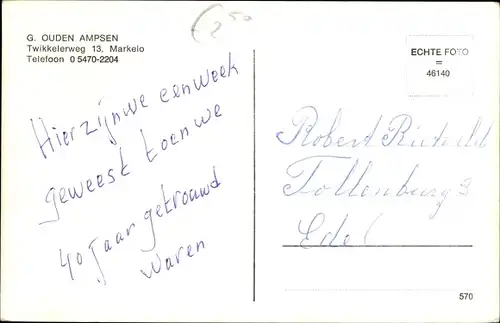 G. OUDEN AMPSEN
Twikkelerweg 13, Markelo
Telefoon 0 5470-2204
250
ECHTE FOTO
=
46140
Hier zijn we een week
geweest toen we
40 jaar getrouwd
waren
Robert
570